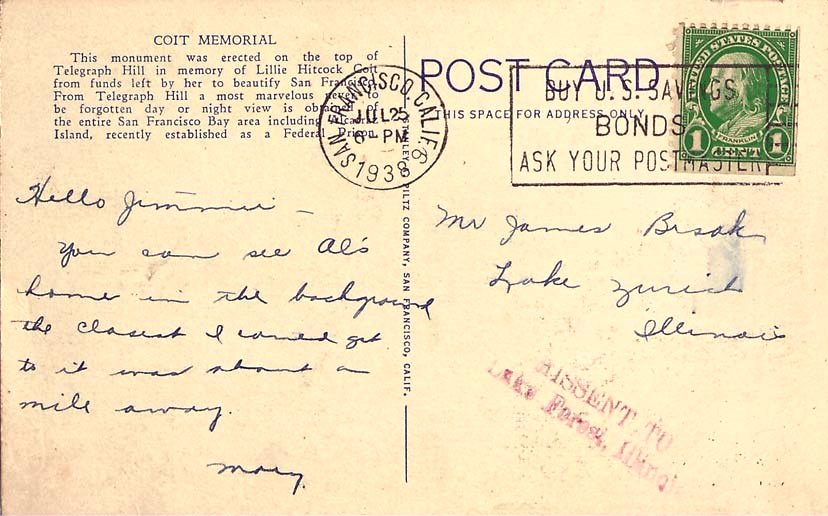 COIT MEMORIAL
This monument was erected on the top of
Telegraph Hill in memory of Lillie Hitcock Coit
from funds left by her to beautify San Francisco.
From Telegraph Hill a most marvelous never to
be forgotten day or night view is obtained of
the entire San Francisco Bay area including Alcatraz
Island, recently established as a Federal Prison.
Hello Jimmie –
You can see Al's
home in the background
the closest I could get
to it was about a
mile away.
Mary.
STANLEY A. PILTZ COMPANY, SAN FRANCISCO, CALIF.
SAN FRANCISCO, CALIF.
JUL 25
6 - PM
1938
POST CARD
THIS SPACE FOR ADDRESS ONLY
BUY U.S. SAVINGS
BONDS
ASK YOUR POSTMASTER
UNITED STATES POSTAGE
FRANKLIN
1 CENT 1
Mr James
Lake Zurich
Illinois
MISSENT TO
Lake Forest, Illinois